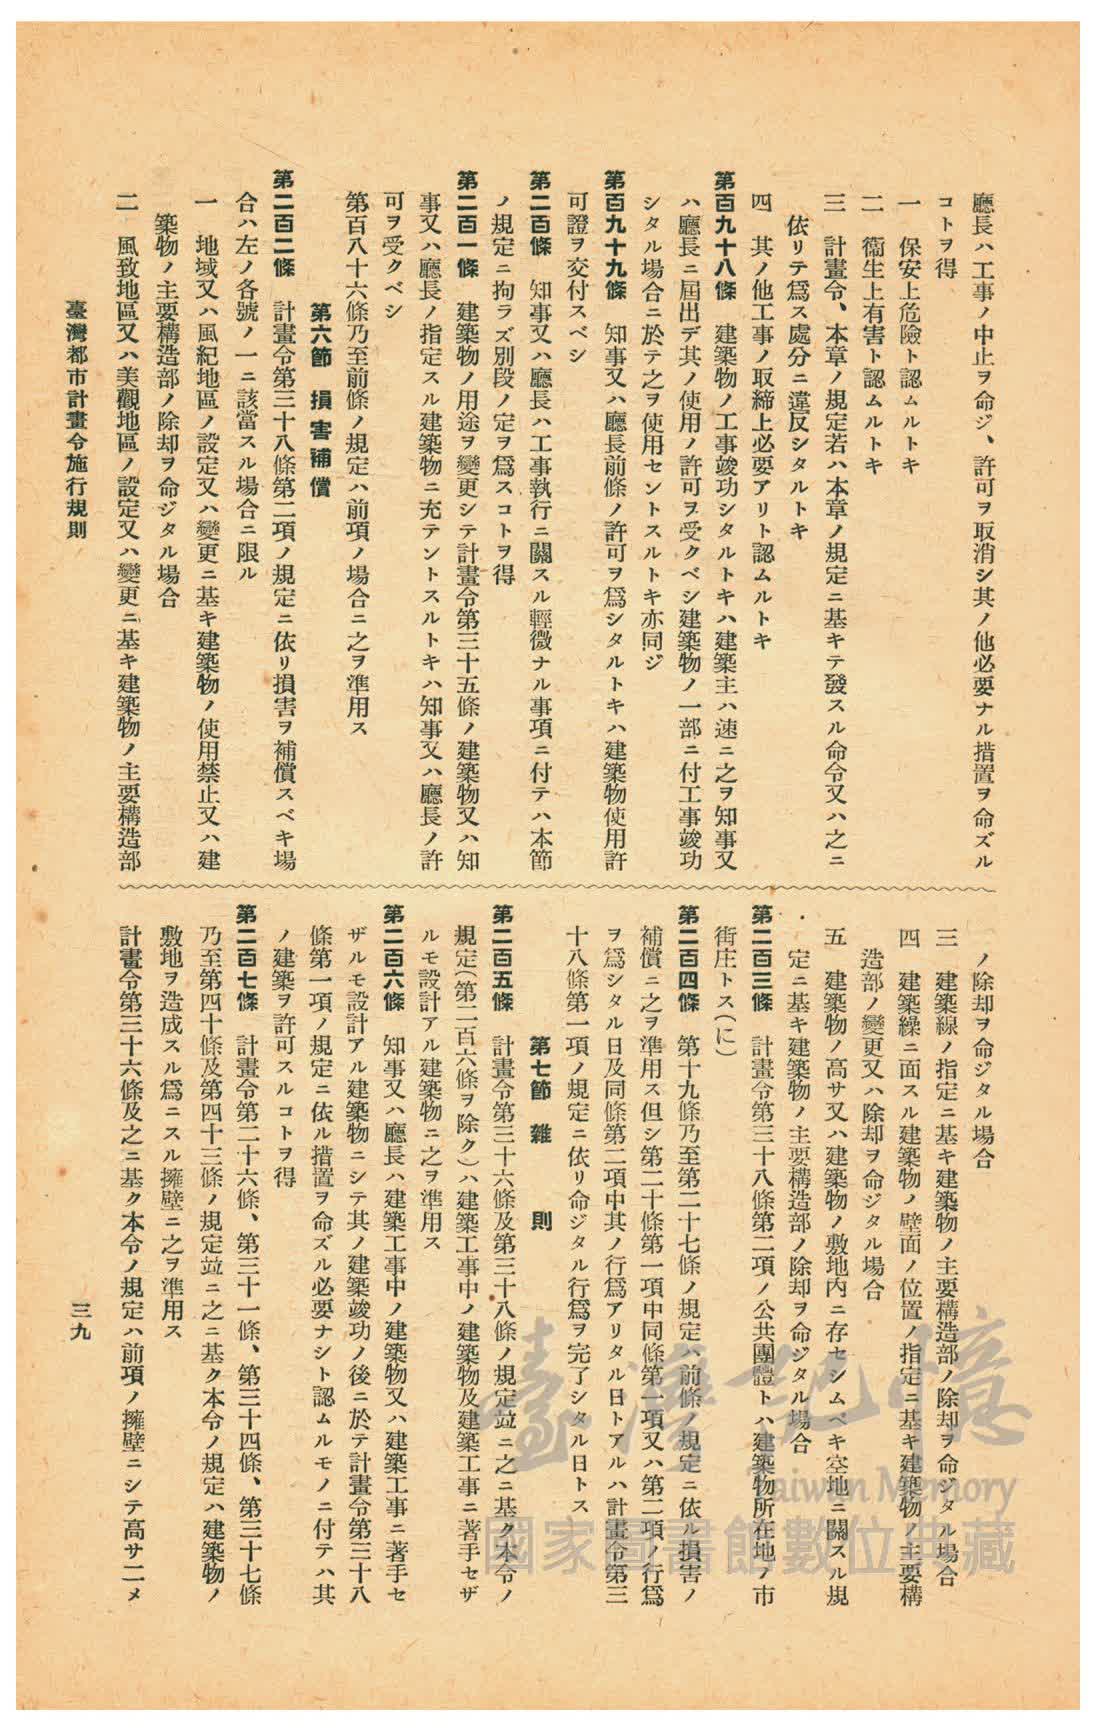 廳長ハ工事ノ中止ヲ命ジ、許可ヲ取消シ其ノ他必要ナル措置ヲ命ズル
コトヲ得
一 保安上危險ト認ムルトキ
二 衞生上有害ト認ムルトキ
三 計畫令、本章ノ規定若ハ本章ノ規定ニ基キテ發スル命令又ハ之ニ
依リテ爲ス處分ニ違反シタルトキ
四 其ノ他工事ノ取締上必要アリト認ムルトキ
第百九十八條 建築物ノ工事竣功シタルトキハ建築主ハ速ニ之ヲ知事又
ハ廳長ニ屆出デ其ノ使用ノ許可ヲ受クベシ建築物ノ一部ニ付工事竣功
シタル場合ニ於テ之ヲ使用セントスルトキ亦同ジ
第百九十九條 知事又ハ廳長前條ノ許可ヲ爲シタルトキハ建築物使用許
可證ヲ交付スベシ
第二百條 知事又ハ廳長ハ工事執行ニ關スル輕微ナル事項ニ付テハ本節
ノ規定ニ拘ラズ別段ノ定ヲ爲スコトヲ得
第二百一條 建築物ノ用途ヲ變更シテ計畫令第三十五條ノ建築物又ハ知
事又ハ廳長ノ指定スル建築物ニ充テントスルトキハ知事又ハ廳長ノ許
可ヲ受クベシ
第百八十六條乃至前條ノ規定ハ前項ノ場合ニ之ヲ準用ス
第六節 損害補償
第二百二條 計畫令第三十八條第二項ノ規定ニ依リ損害ヲ補償スベキ場
合ハ左ノ各號ノ一ニ該當スル場合ニ限ル
一 地域又ハ風紀地區ノ設定又ハ變更ニ基キ建築物ノ使用禁止又ハ建
築物ノ主要構造部ノ除却ヲ命ジタル場合
二 風致地區又ハ美觀地區ノ設定又ハ變更ニ基キ建築物ノ主要構造部
ノ除却ヲ命ジタル場合
三 建築線ノ指定ニ基キ建築物ノ主要構造部ノ除却ヲ命ジタル場合
四 建築線ニ面スル建築物ノ壁面ノ位置ノ指定ニ基キ建築物ノ主要構
造部ノ變更又ハ除却ヲ命ジタル場合
五 建築物ノ高サ又ハ建築物ノ敷地內ニ存セシムベキ空地ニ關スル規
定ニ基キ建築物ノ主要構造部ノ除却ヲ命ジタル場合
第二百三條 計畫令第三十八條第二項ノ公共團體トハ建築物所在地ノ市
街庄トス(に)
第二百四條 第十九條乃至第二十七條ノ規定ハ前條ノ規定ニ依ル損害ノ
補償ニ之ヲ準用ス但シ第二十條第一項中同條第一項又ハ第二項ノ行爲
ヲ爲シタル日及同條第二項中其ノ行爲アリタル日トアルハ計畫令第三
十八條第一項ノ規定ニ依リ命ジタル行爲ヲ完了シタル日トス
第七節 雜則
第二百五條 計畫令第三十六條及第三十八條ノ規定竝ニ之ニ基ク本令ノ
規定(第二百六條ヲ除ク)ハ建築工事中ノ建築物及建築工事ニ著手セザ
ルモ設計アル建築物ニ之ヲ準用ス
第二百六條 知事又ハ廳長ハ建築工事中ノ建築物又ハ建築工事ニ著手セ
ザルモ設計アル建築物ニシテ其ノ建築竣功ノ後ニ於テ計畫令第三十八
條第一項ノ規定ニ依ル措置ヲ命ズル必要ナシト認ムルモノニ付テハ其
ノ建築ヲ許可スルコトヲ得
第二百七條 計畫令第二十六條、第三十一條、第三十四條、第三十七條
乃至第四十條及第四十三條ノ規定竝ニ之ニ基ク本令ノ規定ハ建築物ノ
敷地ヲ造成スル爲ニスル擁壁ニ之ヲ準用ス
計畫令第三十六條及之ニ基ク本令ノ規定ハ前項ノ擁壁ニシテ高サ二メ
臺灣都市計畫令施行規則
三九
臺灣記憶
Taiwan Memory
國家圖書館數位典藏